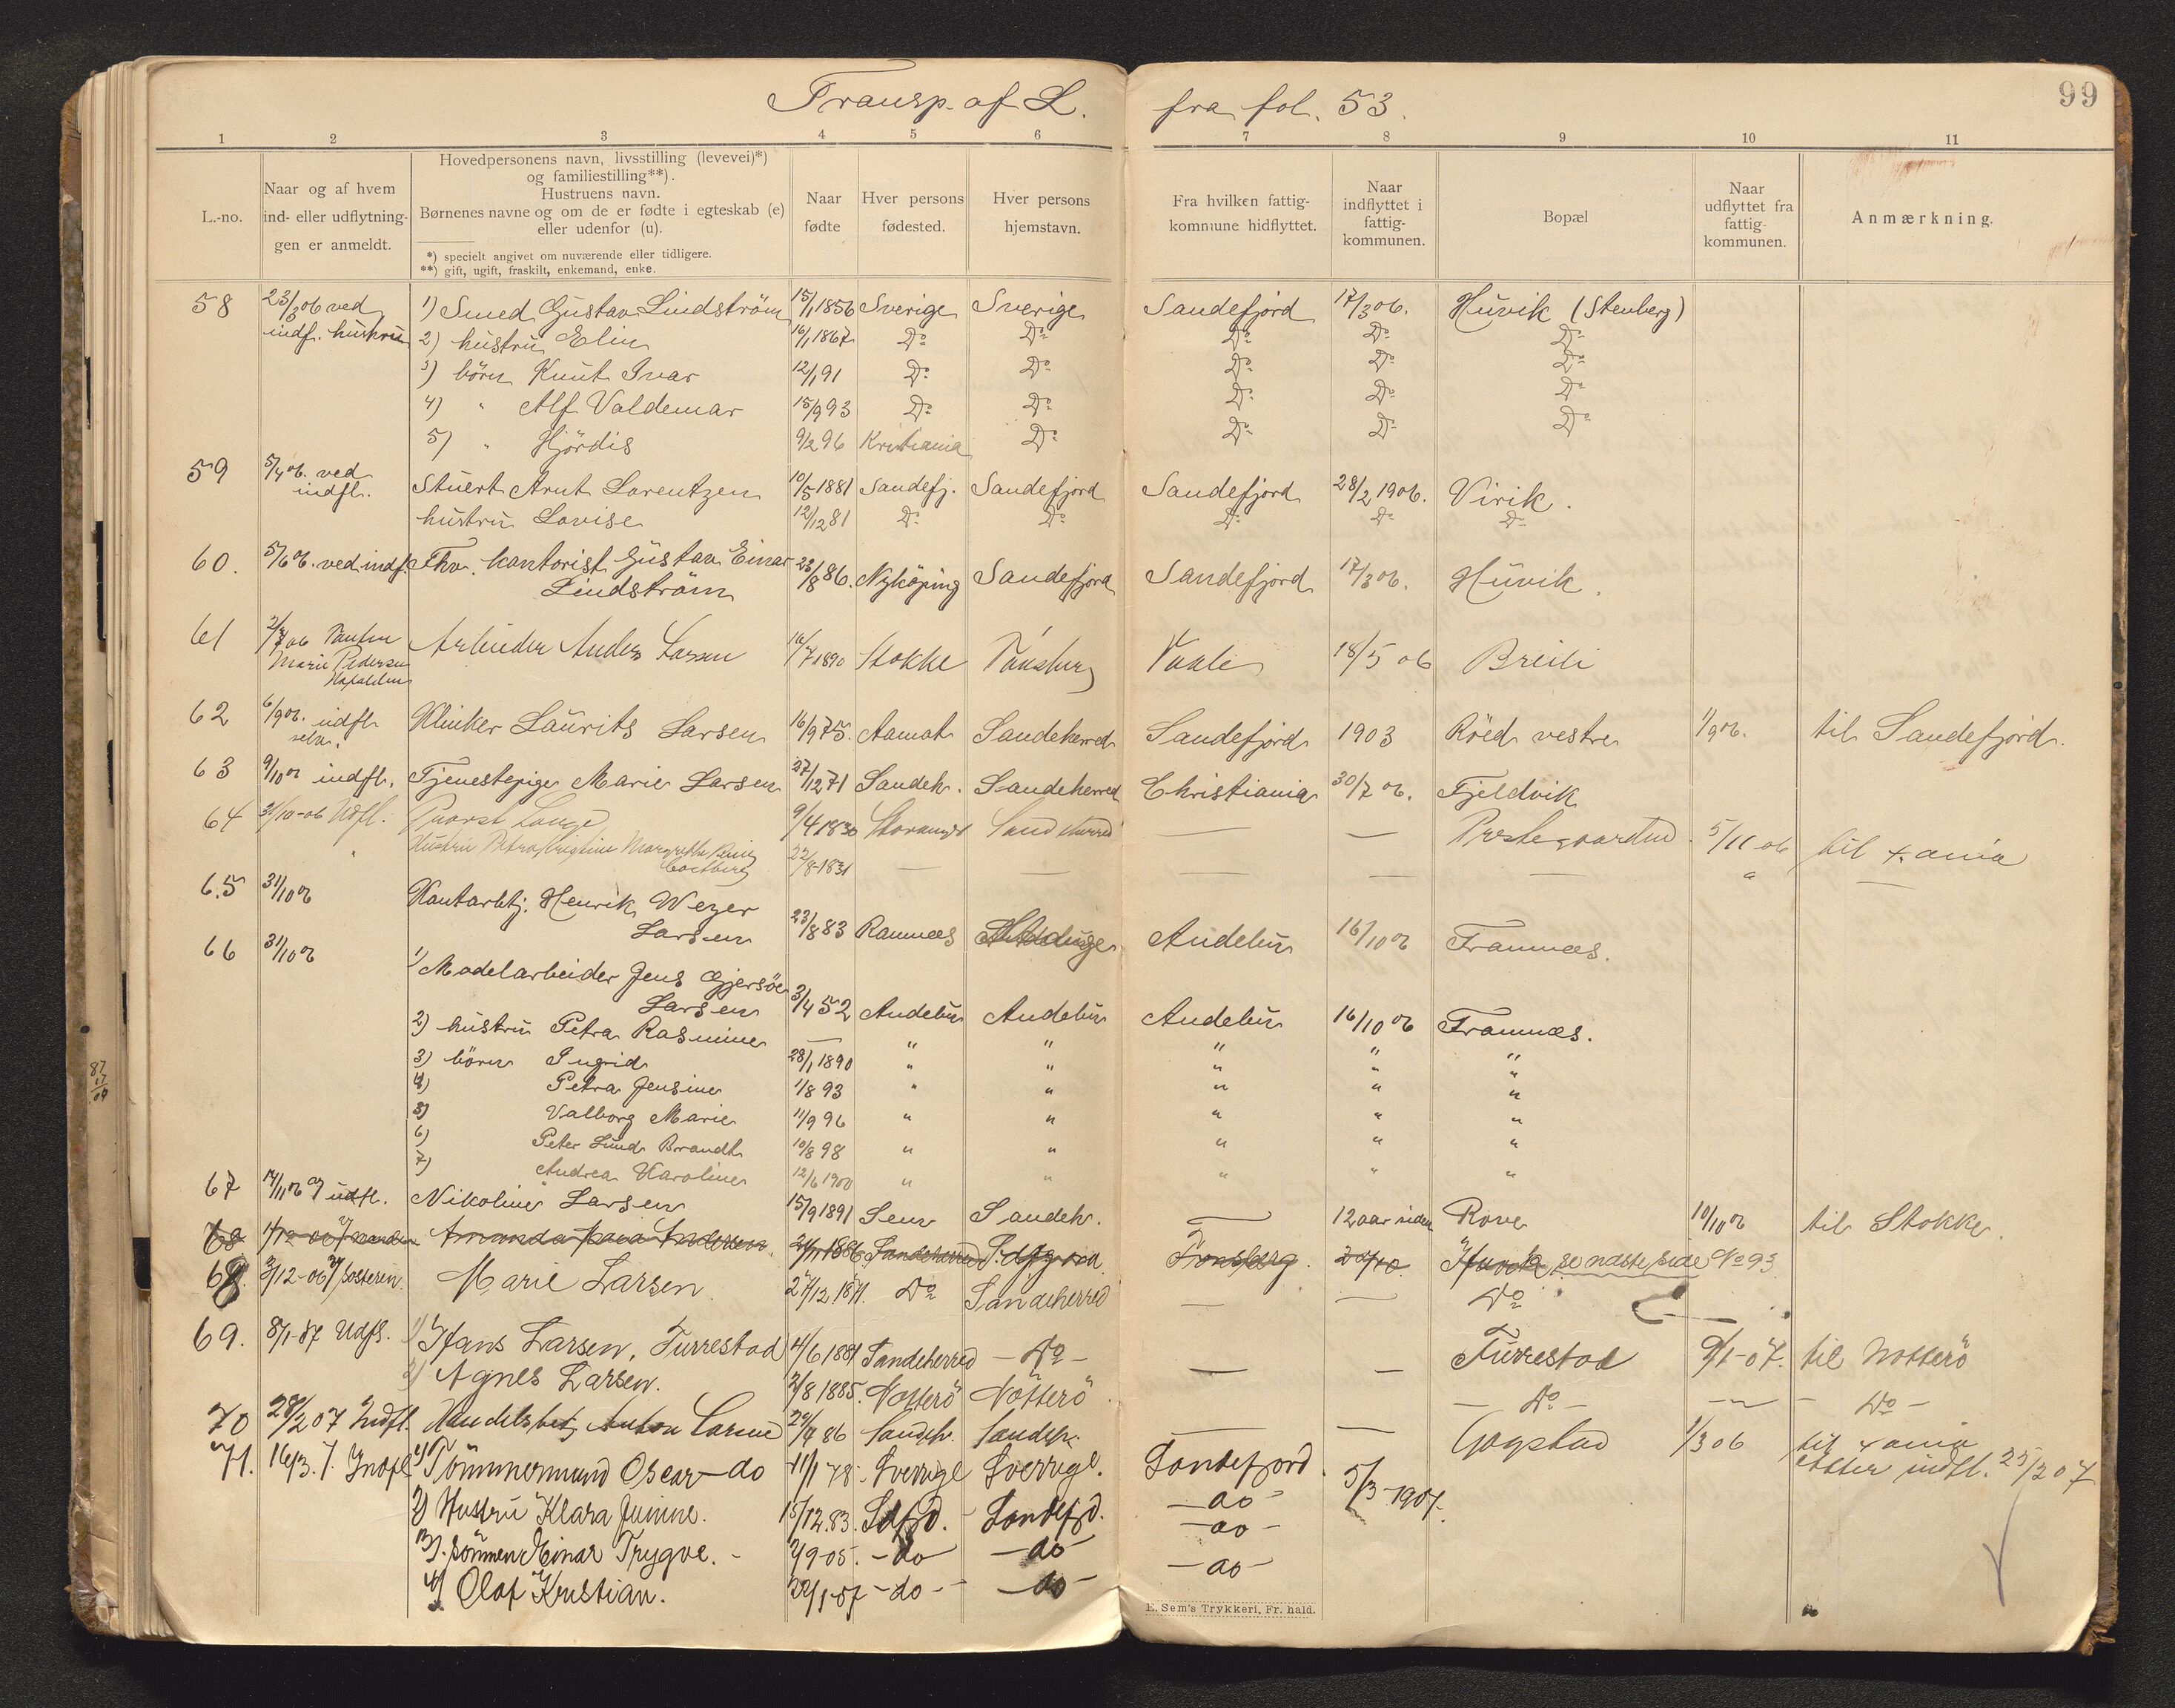 Transp. af L. fra fol. 53.
99
1 2 3 4 5 6 7 8 9 10 11
L.-no.
Naar og af hvem
ind- eller udflytnin-
gen er anmeldt.
Hovedpersonens navn, livsstilling (levevei)*)
og familiestilling**).
Hustruens navn.
Børnenes navne og om de er fødte i egteskab (e)
eller udenfor (u).
*) specielt angivet om nuværende eller tidligere.
**) gift, ugift, fraskilt, enkemand, enke.
Naar
fødte
Hver persons
fødested.
Hver persons
hjemstavn.
Fra hvilken fattig-
kommune hidflyttet.
Naar
indflyttet i
fattig-
kommunen.
Bopæl
Naar
udflyttet fra
fattig-
kommunen.
Anmærkning.
58 23/3 06 ved 1) Smed Gustav Lindström 15/1 1856 Sverige Sverige Sandefjord 17/3 06. Huvik (Stenberg)
indf. hustru 2) hustru Elin 16/1 1867 Do Do Do Do Do
3) börn Knut Ivar 12/1 91 Do Do Do Do Do
4) " Alf Valdemar 15/9 93 Do Do Do Do Do
5) " Hjördis 9/2 96 Kristiania Do Do Do Do
59 5/4 06. ved Stuert Arnt Lorentzen 10/5 1881 Sandefj. Sandefjord Sandefjord 28/2 1906. Virik.
indfl.
hustru Lovise 12/12 81 Do Do Do Do Do
60. 5/6 06. ved indf. Fhv. kontorist Gustav Einar 23/8 86. Nyköping Sandefjord Sandefjord 17/3 06. Huvik.
Lindström
61 06 Arbeider Anders Larsen 1890 Stokke Tönsberg 18/5 06 Breili
Marie Pedersen
62 6/9 06. indfl. Klinker Laurits Larsen 16/9 75. Aamot Sandeherred Sandefjord 1903 Röed vestre 1/9 06. til Sandefjord.
selv.
63 9/10 06 indfl. Tjenestepige Marie Larsen 27/12 71 Sandeh. Sandeherred Christiania 30/7 06. Fjeldvik
64 31/10-06 Udfl. Provst Lange 9/4 1830 Stavanger Sandeherred — — Prestegaarden 5/11 06 til X.ania
" Hustru Petra Kristine Margrethe 22/8-1831 — — — — — " —
65 31/10 06 Kontorbtj. Henrik Wezer
Larsen 23/8 83 Ramnæs Andebu 16/10 06 Framnæs.
66 31/10 06 1) Modelarbeider Jens Gjersöe
Larsen 3/4 52 Andebu Andebu Andebu 16/10 06 Framnæs.
2) hustru Petra Rasmine — " " " " "
3) börn Ingrid 28/1 1890 " " " " "
4) Petra Jensine 1/8 93 " " " " "
5) Valborg Marie 11/9 96 " " " " "
6) Peter Lund Brandt 10/8 98 " " " " "
7) Andrea Karoline 12/6 1900 " " " " "
67 14/11 06 af udfl. Nikoline Larsen 15/9 1891 Sem Sandeh. — 12 aar siden Rove 10/11 06 til Stokke
68 Amanda Andersen 1886 Sandeherred Tönsberg 20/10 Huvik se næste side No 93
68. 3/12-06 af Söstern Marie Larsen 27/12 1871. Do Sandeherred — — Do
69. 8/1-07 Udfl. 1) Hans Larsen, Furrestad 4/6 1881 Sandeherred — Do — — — Furrestad 9/1-07. til Nötterö
2) Agnes Larsen. 2/8 1885. Nötterö Nötterö — Do — — — Do —
70 28/2 07 Indfl. Handelsbetj. Anton Larsen 86 Sandeh. Sandeh. — — Gogstad 1/3 06 til X ania
atter indfl. 25/2 07
71. 16/3. 7. Indfl. 1) Tömmermand Oscar — do 11/1 78. Sverrige Sverrige. Sandefjord. 5/3-1907.
2) Hustru Klara Jensine. 15/12.83. Sdfjd. Sandefjd. — do —
3). sönnen Einar Trygve. - 2/9-05. — do — do — — do —
4) Olaf Kristian. 20/1-07 — do — — do — — do —
E. Sem's Trykkeri, Fr. hald.